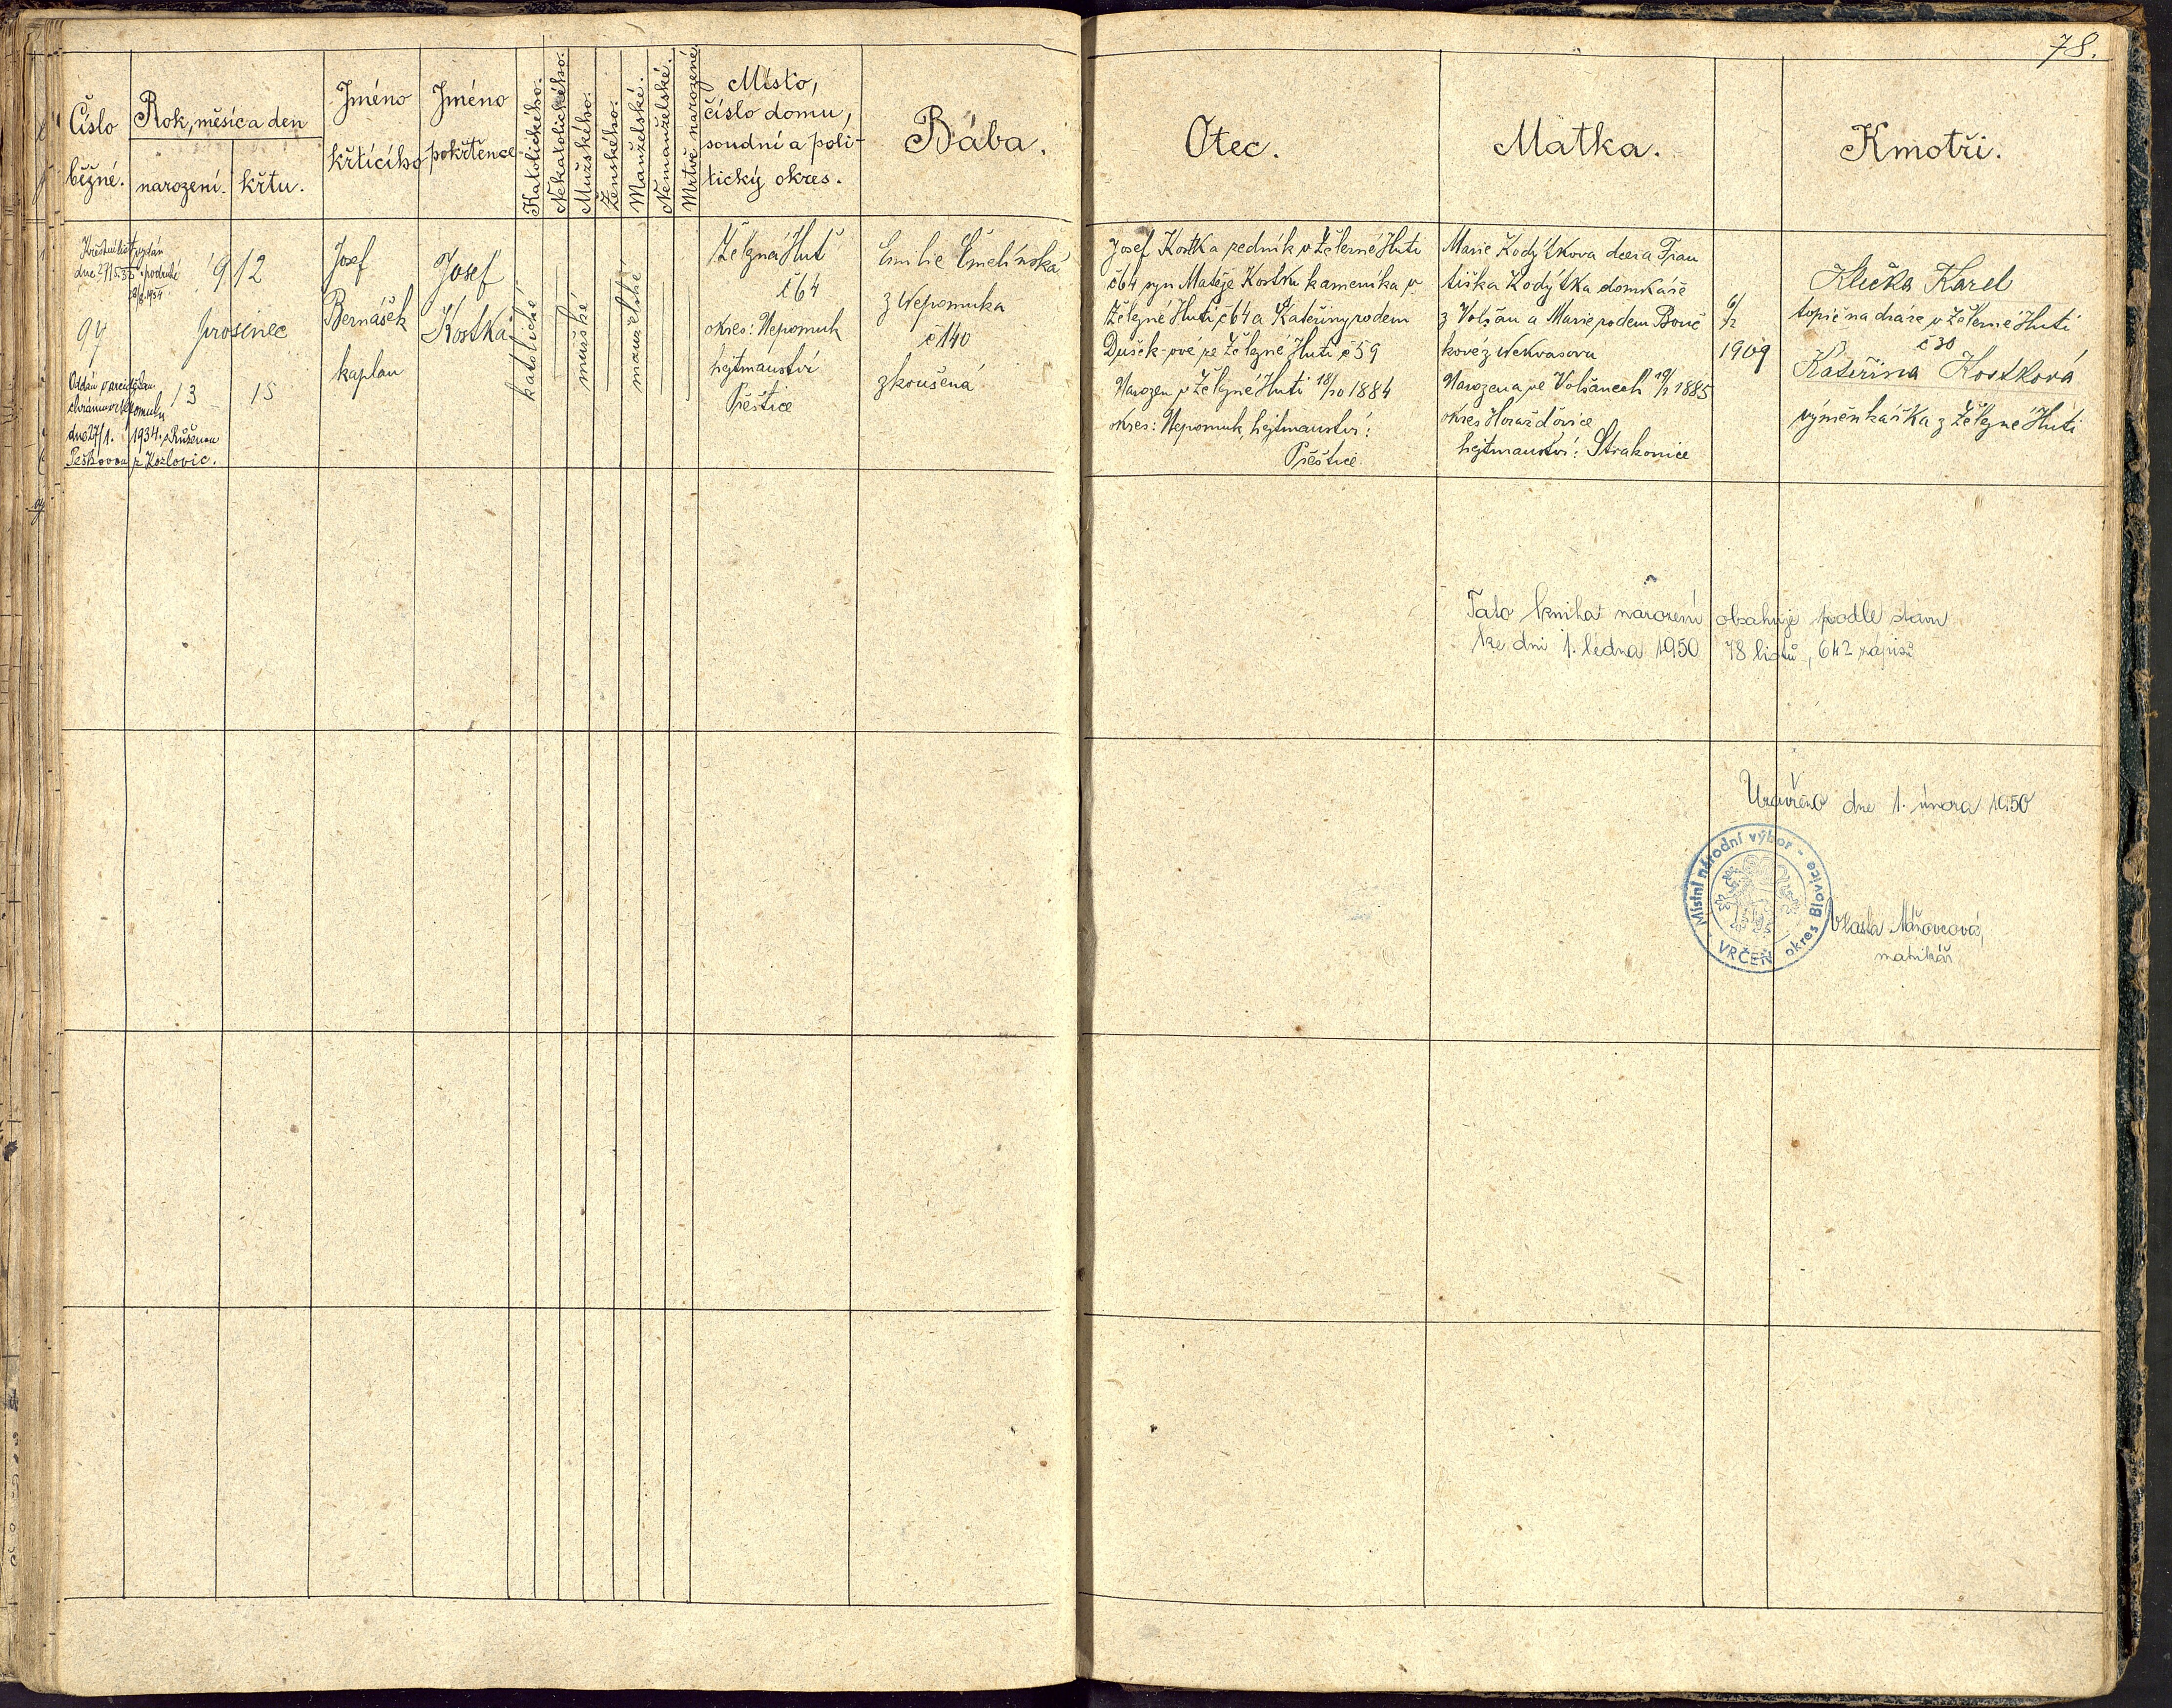 78.
Číslo
běžné.
Rok, měsíc a den
narození.
křtu.
Jméno
křtícího
Jméno
pokřtěnce
Katolického.
Nekatolického.
Mužského.
Ženského.
Manželské.
Nemanželské.
Mrtvě narozené
Místo,
číslo domu,
soudní a poli-
tický okres.
Bába.
Otec.
Matka.
Kmotři.
Křestní list vydán
podruhé
94
Oddán
dne 27/1. 1934.
z Kozlovic.
1912
prosinec
13
15
Josef
Bernášek
kaplan
Josef
Kostka
katolické
mužské
manželské
Železná Huť
č 64
okres: Nepomuk
hejtmanství
Přeštice
Emilie
z Nepomuka
č 140
zkoušená
Josef Kostka zedník v Železné Huti
č 64 syn Matěje Kostky kameníka v
Železné Huti č 64 a Kateřiny rodem
Dušek-ové ze Železné Huti č 59
Narozen v Železné Huti 18/10 1884
okres: Nepomuk, hejtmanství:
Přeštice
Marie Kodýtkova dcera Fran
tiška Kodýtka domkáře
z Volšan a Marie rodem Bouč
kové z Nekvasova
Narozena ve Volšanech 1885
okres Horažďovice
hejtmanství: Strakonice
6/2
1909
Klečka Karel
topič na dráze v Železné Huti
č 30
Kateřina Kostková
výměnkářka z Železné Huti
Tato kniha narození obsahuje podle stavu
ke dni 1. ledna 1950 78 listů, 642 zápisů
Uzavřeno dne 1. února 1950
Místní národní výbor - VRČEŇ okres Blovice
Vlasta
matrikář